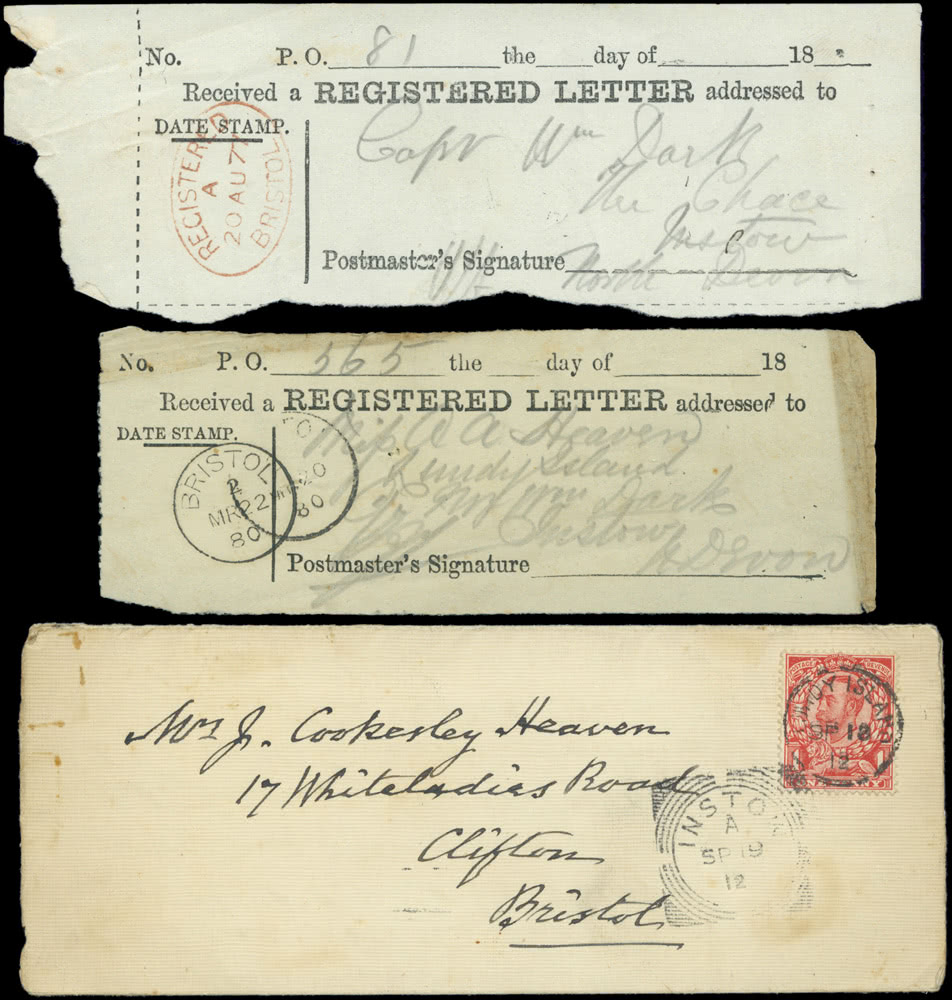 No. P. O. 81 the day of 18
Received a REGISTERED LETTER addressed to
DATE STAMP.
REGISTERED
A
20 AU 77
BRISTOL
Capt Wm Dark
The Chace
Instow
North Devon
Postmaster's Signature
No. P. O. 565 the day of 18
Received a REGISTERED LETTER addressed to
DATE STAMP.
BRISTOL
2
MR 22
80
20
80
Miss A A Heaven
Lundy Island
Wm Dark
Instow
N Devon
Postmaster's Signature
Mrs J. Cookesley Heaven
17 Whiteladies Road
Clifton
Bristol
LUNDY ISLAND
SP 18
12
INSTOW
A
SP 19
12